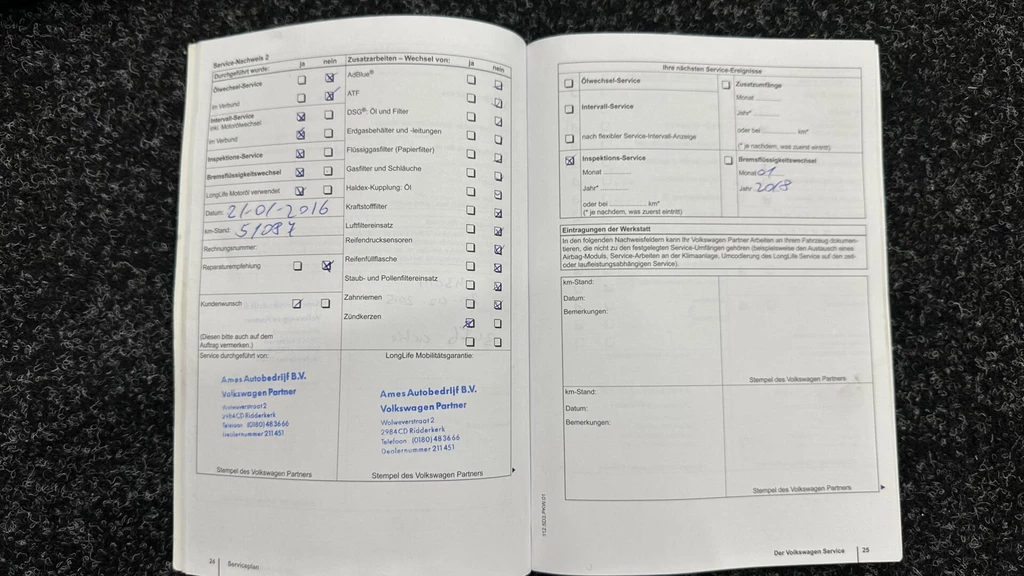 Service-Nachweis 2
Durchgeführt wurde: ja nein
Ölwechsel-Service
im Verbund
Intervall-Service
inkl. Motorölwechsel
im Verbund
Inspektions-Service
Bremsflüssigkeitswechsel
LongLife Motoröl verwendet
Datum: 21-01-2016
km-Stand:
Rechnungsnummer:
Reparaturempfehlung
Kundenwunsch
(Diesen bitte auch auf dem
Auftrag vermerken.)
Zusatzarbeiten – Wechsel von: ja nein
AdBlue®
ATF
DSG®: Öl und Filter
Erdgasbehälter und -leitungen
Flüssiggasfilter (Papierfilter)
Gasfilter und Schläuche
Haldex-Kupplung: Öl
Kraftstofffilter
Luftfiltereinsatz
Reifendrucksensoren
Reifenfüllflasche
Staub- und Pollenfiltereinsatz
Zahnriemen
Zündkerzen
Service durchgeführt von:
Ames Autobedrijf B.V.
Volkswagen Partner
Wolweverstraat 2
2984CD Ridderkerk
Telefoon (0180) 483666
Dealernummer 211451
Stempel des Volkswagen Partners
LongLife Mobilitätsgarantie:
Ames Autobedrijf B.V.
Volkswagen Partner
Wolweverstraat 2
2984CD Ridderkerk
Telefoon (0180) 483666
Dealernummer 211451
Stempel des Volkswagen Partners
24 Serviceplan
Ihre nächsten Service-Ereignisse
Ölwechsel-Service
Intervall-Service
nach flexibler Service-Intervall-Anzeige
Inspektions-Service
Monat
Jahr*
oder bei km*
(* je nachdem, was zuerst eintritt)
Zusatzumfänge
Monat
Jahr*
oder bei km*
(* je nachdem, was zuerst eintritt)
Bremsflüssigkeitswechsel
Monat 01
Jahr 2018
Eintragungen der Werkstatt
In den folgenden Nachweisfeldern kann Ihr Volkswagen Partner Arbeiten an Ihrem Fahrzeug dokumen-
tieren, die nicht zu den festgelegten Service-Umfängen gehören (beispielsweise den Austausch eines
Airbag-Moduls, Service-Arbeiten an der Klimaanlage, Umcodierung des LongLife Service auf den zeit-
oder laufleistungsabhängigen Service).
km-Stand:
Datum:
Bemerkungen:
Stempel des Volkswagen Partners
km-Stand:
Datum:
Bemerkungen:
Stempel des Volkswagen Partners
Der Volkswagen Service 25